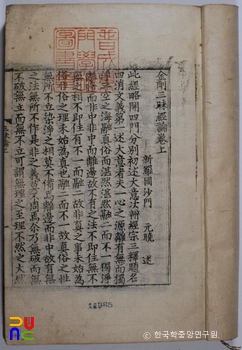 金剛三昧經論卷上
新羅國沙門 元曉 述
此經略開四門分別初述大意次辨經宗三釋題名
四消文義第一述大意者夫一心之源離有無而獨
淨三空之海融眞俗而湛然湛然融二而不一獨淨
離邊而非中非中而離邊故不有之法不即住無不
無之相不即住有不一而融二故非眞之事未始爲
俗非俗之理未始爲眞也融二而不一故眞俗之性
無所不立染淨之相莫不備焉離邊而非中故有無
之法無所不作是非之義莫不周焉尒乃無破而無
不破無立而無不立可謂無理之至理不然之大然
한국학중앙연구원